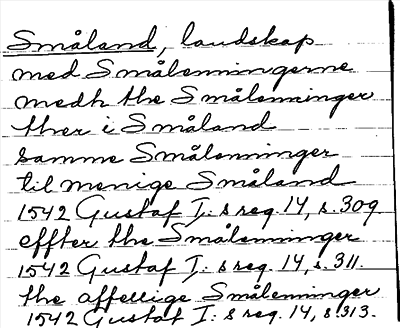 Småland, landskap
med Smålenningerne
medh the Smålenninger
ther i Småland
samme Smålenninger
til menige Småland
1542 Gustaf I:s reg. 14, s. 309
effter the Smålenninger
1542 Gustaf I:s reg. 14, s. 311.
the affellige Smålenninger
1542 Gustaf I:s reg. 14, s. 313.